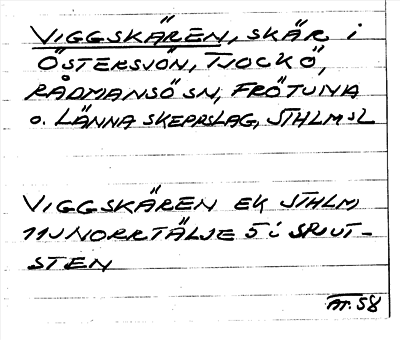 VIGGSKÄREN, SKÄR i
ÖSTERSJÖN, TJOCKÖ,
RÅDMANSÖ SN, FRÖTUNA
o. LÄNNA SKEPPSLAG, STHLMSL
VIGGSKÄREN EK STHLM
11J NORRTÄLJE 5 i
STEN
AT. 58